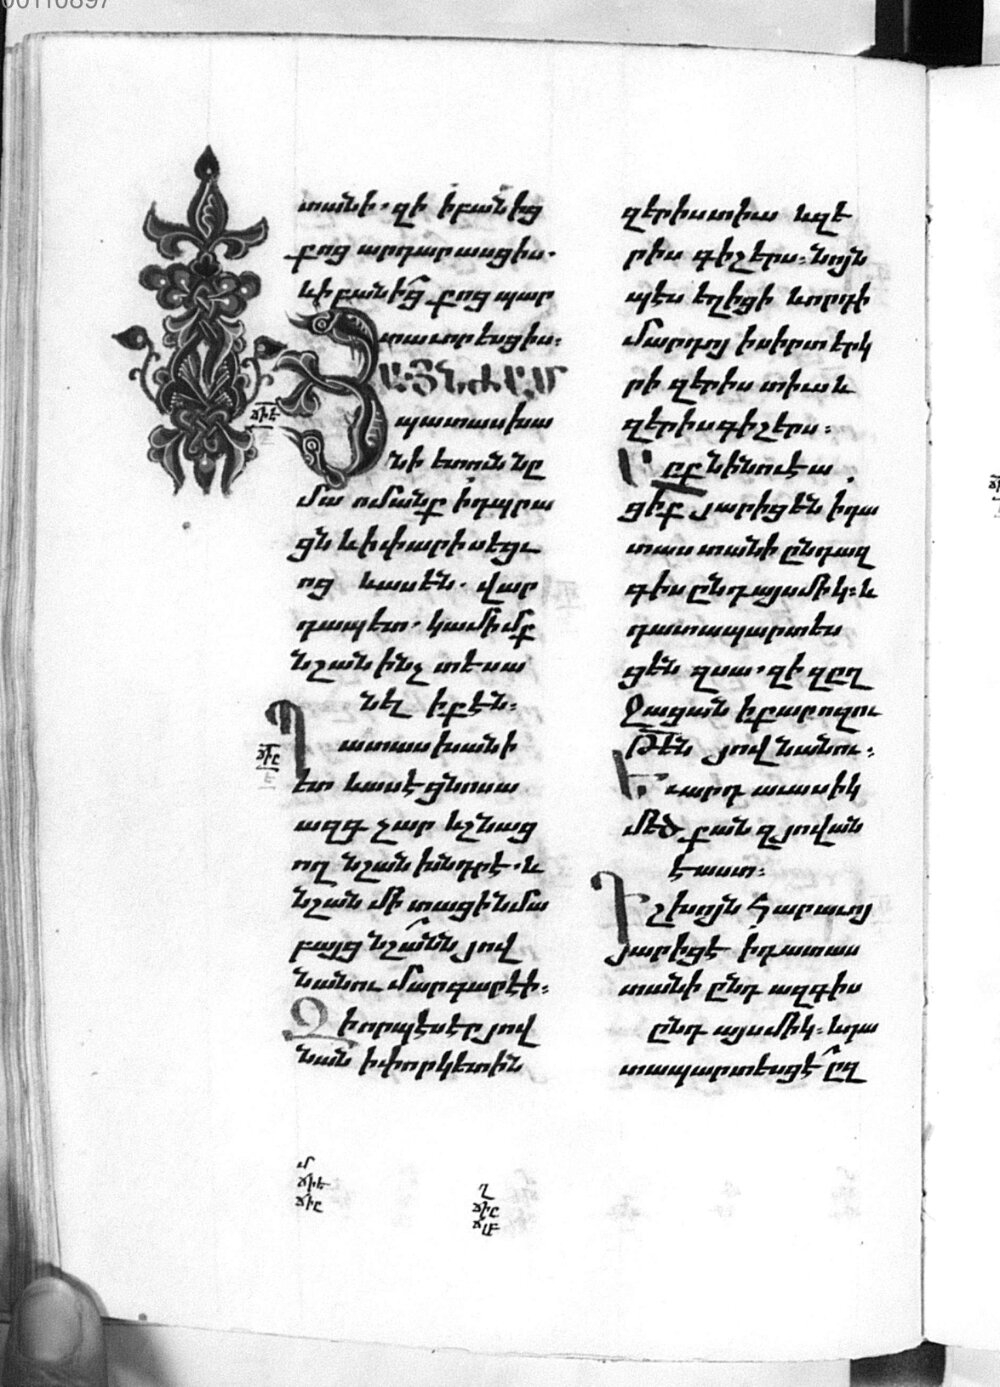 տանի. զի ի բանից
քոց արդարասցիս.
և ի բանից քոց պար
տաւորեսցիս:
ՅԱՅՆԺԱՄ
պատասխա
նի ետուն նը
մա ոմանք ի դպրա
ցն և ի փարիսեցւ
ոց և ասեն. վար
դապետ. կամիմք
նշան ինչ տեսա
նել ի քէն:
Պատասխանի
ետ և ասէ ցնոսա
ազգ չար և շնաց
ող նշան խնդրէ. և
նշան մի տացի նմա
բայց նշանն յով
նանու մարգարէի:
Զի որպէս էր յով
նան ի փոր կետին
զերիս տիւս և զե
րիս գիշերս: նոյն
պէս եղիցի և որդի
մարդոյ ի սիրտ երկ
րի զերիս տիւս և
զերիս գիշերս:
Արք նինուէա
ցիք յարիցեն ի դա
տաստանի ընդ ազ
գիս ընդ այսմիկ: և
դատապարտես
ցեն զսա, զի զըղ
ջացան ի քարոզու
թեն յովնանու:
Եւ արդ աւասիկ
մեծ քան զյովնան
է աստ:
Դշխոյն հարաւոյ
յարիցէ ի դատաս
տանի ընդ ազգիս
ընդ այսմիկ: և դա
տապարտեսցէ ըզ
ճիէ
ճիը
մ
ճիէ
ճիը
ղ
ճիը
ճլբ